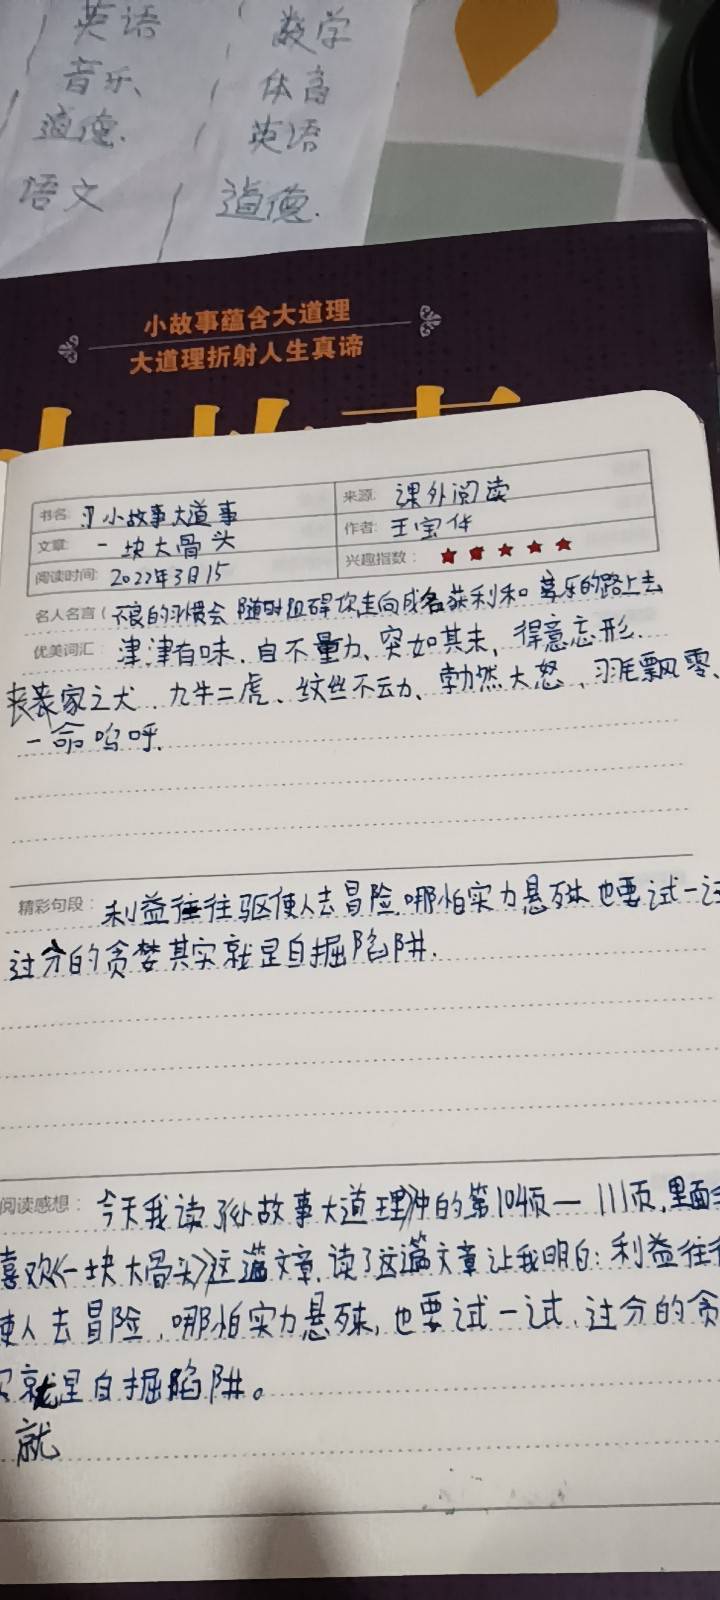 英语 数学
音乐、 体育
道德. 英语
语文 道德.
小故事蕴含大道理
大道理折射人生真谛
书名: 小故事大道事 来源: 课外阅读
文章: 一块大骨头 作者: 王宝华
阅读时间: 2022年3月15 兴趣指数: ★★★★★
名人名言( 不良的习惯会随时阻碍你走向成名获利和享乐的路上去
优美词汇: 津津有味、自不量力、突如其来、得意忘形、
丧家之犬、九牛二虎、纹丝不动、勃然大怒、羽毛飘零、
一命呜呼.
精彩句段: 利益往往驱使人去冒险,哪怕实力悬殊也要试一试
过分的贪婪其实就是自掘陷阱.
阅读感想: 今天我读了《小故事大道理》中的第104页一111页,里面
喜欢《一块大骨头》这篇文章,读了这篇文章让我明白:利益往往
使人去冒险,哪怕实力悬殊,也要试一试,过分的贪
就是自掘陷阱。
就